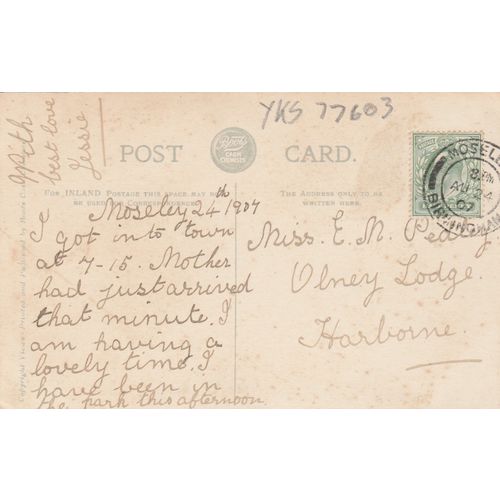 YKS 77603
With
best love
Jessie
POST CARD.
Boots
CASH
CHEMISTS
FOR INLAND POSTAGE THIS SPACE MAY BE
USED FOR CORRESPONDENCE.
THE ADDRESS ONLY TO BE
WRITTEN HERE.
Moseley 24th 1907
I got into town
at 7-15. Mother
had just arrived
that minute. I
am having a
lovely time. I
have been in
the park this afternoon
Miss. E. M.
Olney Lodge.
Harborne.
MOSELEY
8 PM
AU 24
07
BIRMINGHAM